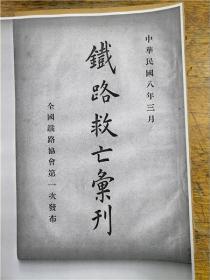 中華民國八年三月
鐵路救亡彙刊
全國鐵路協會第一次發布